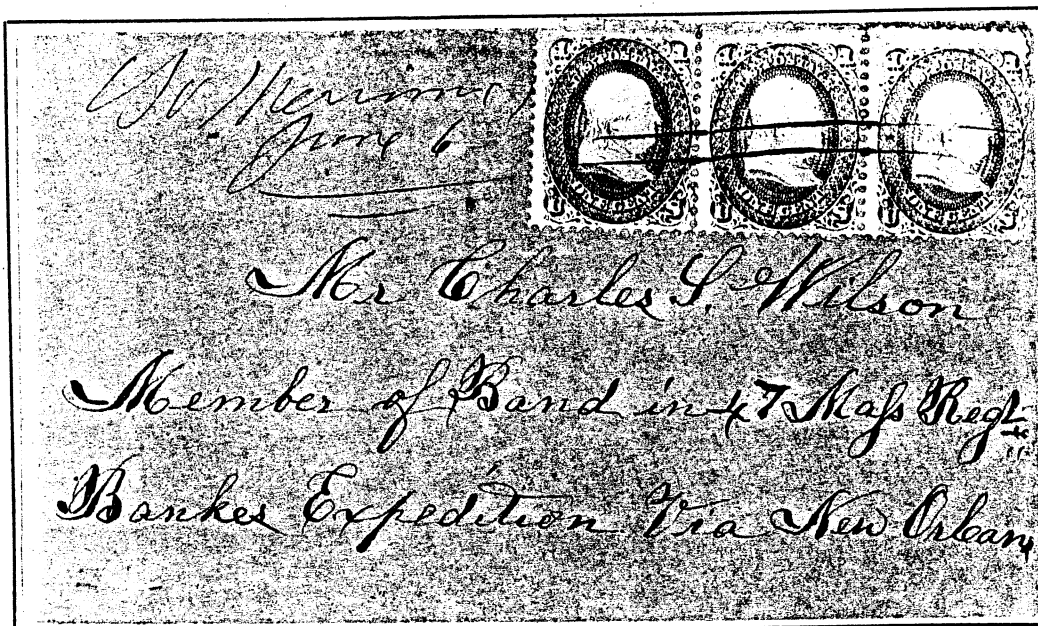 So Merrimac
June 6
Mr Charles S. Wilson
Member of Band in 47 Mass Regt
Bankes Expedition Via New Orleans